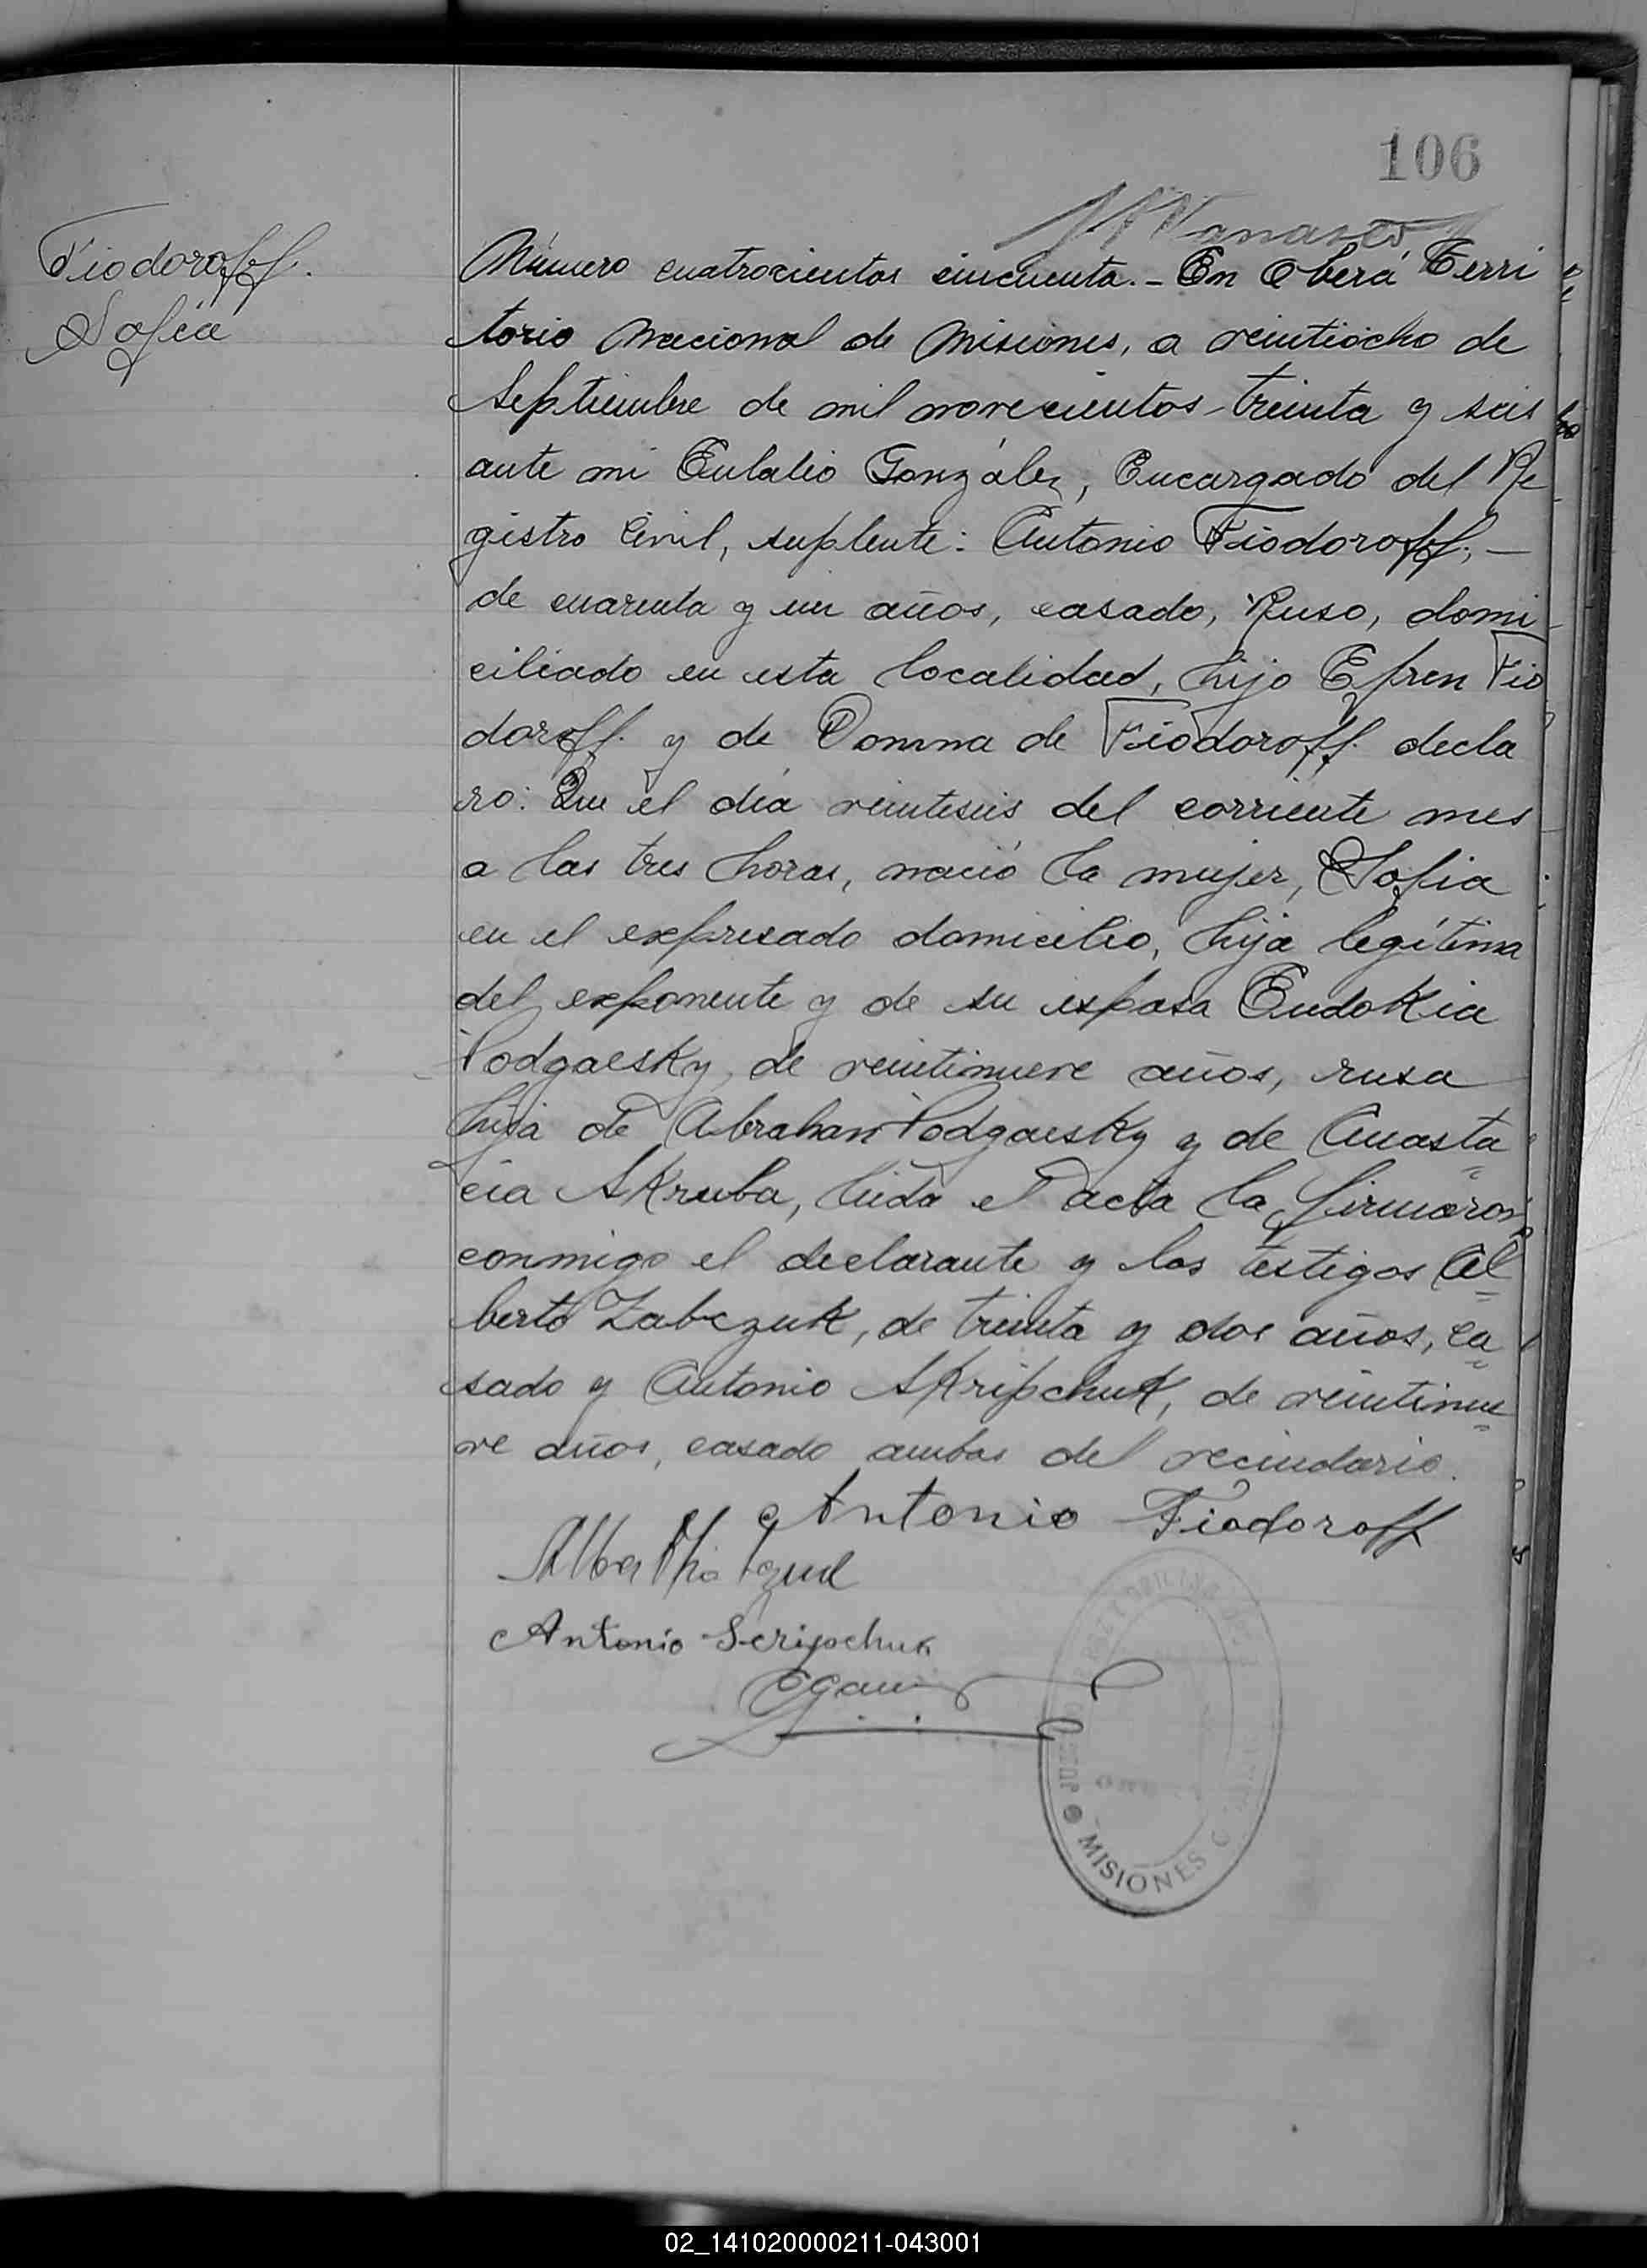 106
Fiodoroff.
Sofia
Número cuatrocientos cincuenta.- En Oberá Terri
torio Nacional de Misiones, a veintiocho de
Septiembre de mil novecientos treinta y seis
ante mi Eulalio González, Encargado del Re
gistro Civil, suplente: Antonio Fiodoroff, —
de cuarenta y un años, casado, Ruso, domi
ciliado en esta localidad, hijo Efren Fio
doroff. y de Domna de Fiodoroff. decla
ro: Que el día veinteseis del corriente mes
a las tres horas, nació la mujer, Sofia
en el expresado domicilio, hija legítima
del exponente y de su esposa Eudokia
Podgaesky, de veintinueve años, rusa
hija de Abraham Podgaesky y de Anasta
cia Skruba, leida el acta la firmaron
conmigo el declarante y los testigos Al
berto Zabczuk, de treinta y dos años, ca
sado y Antonio Skripchuk, de veintinue
ve años, casado ambos del vecindario.
Antonio Fiodoroff
Antonio Scripchuk
MISIONES
02_141020000211-043001